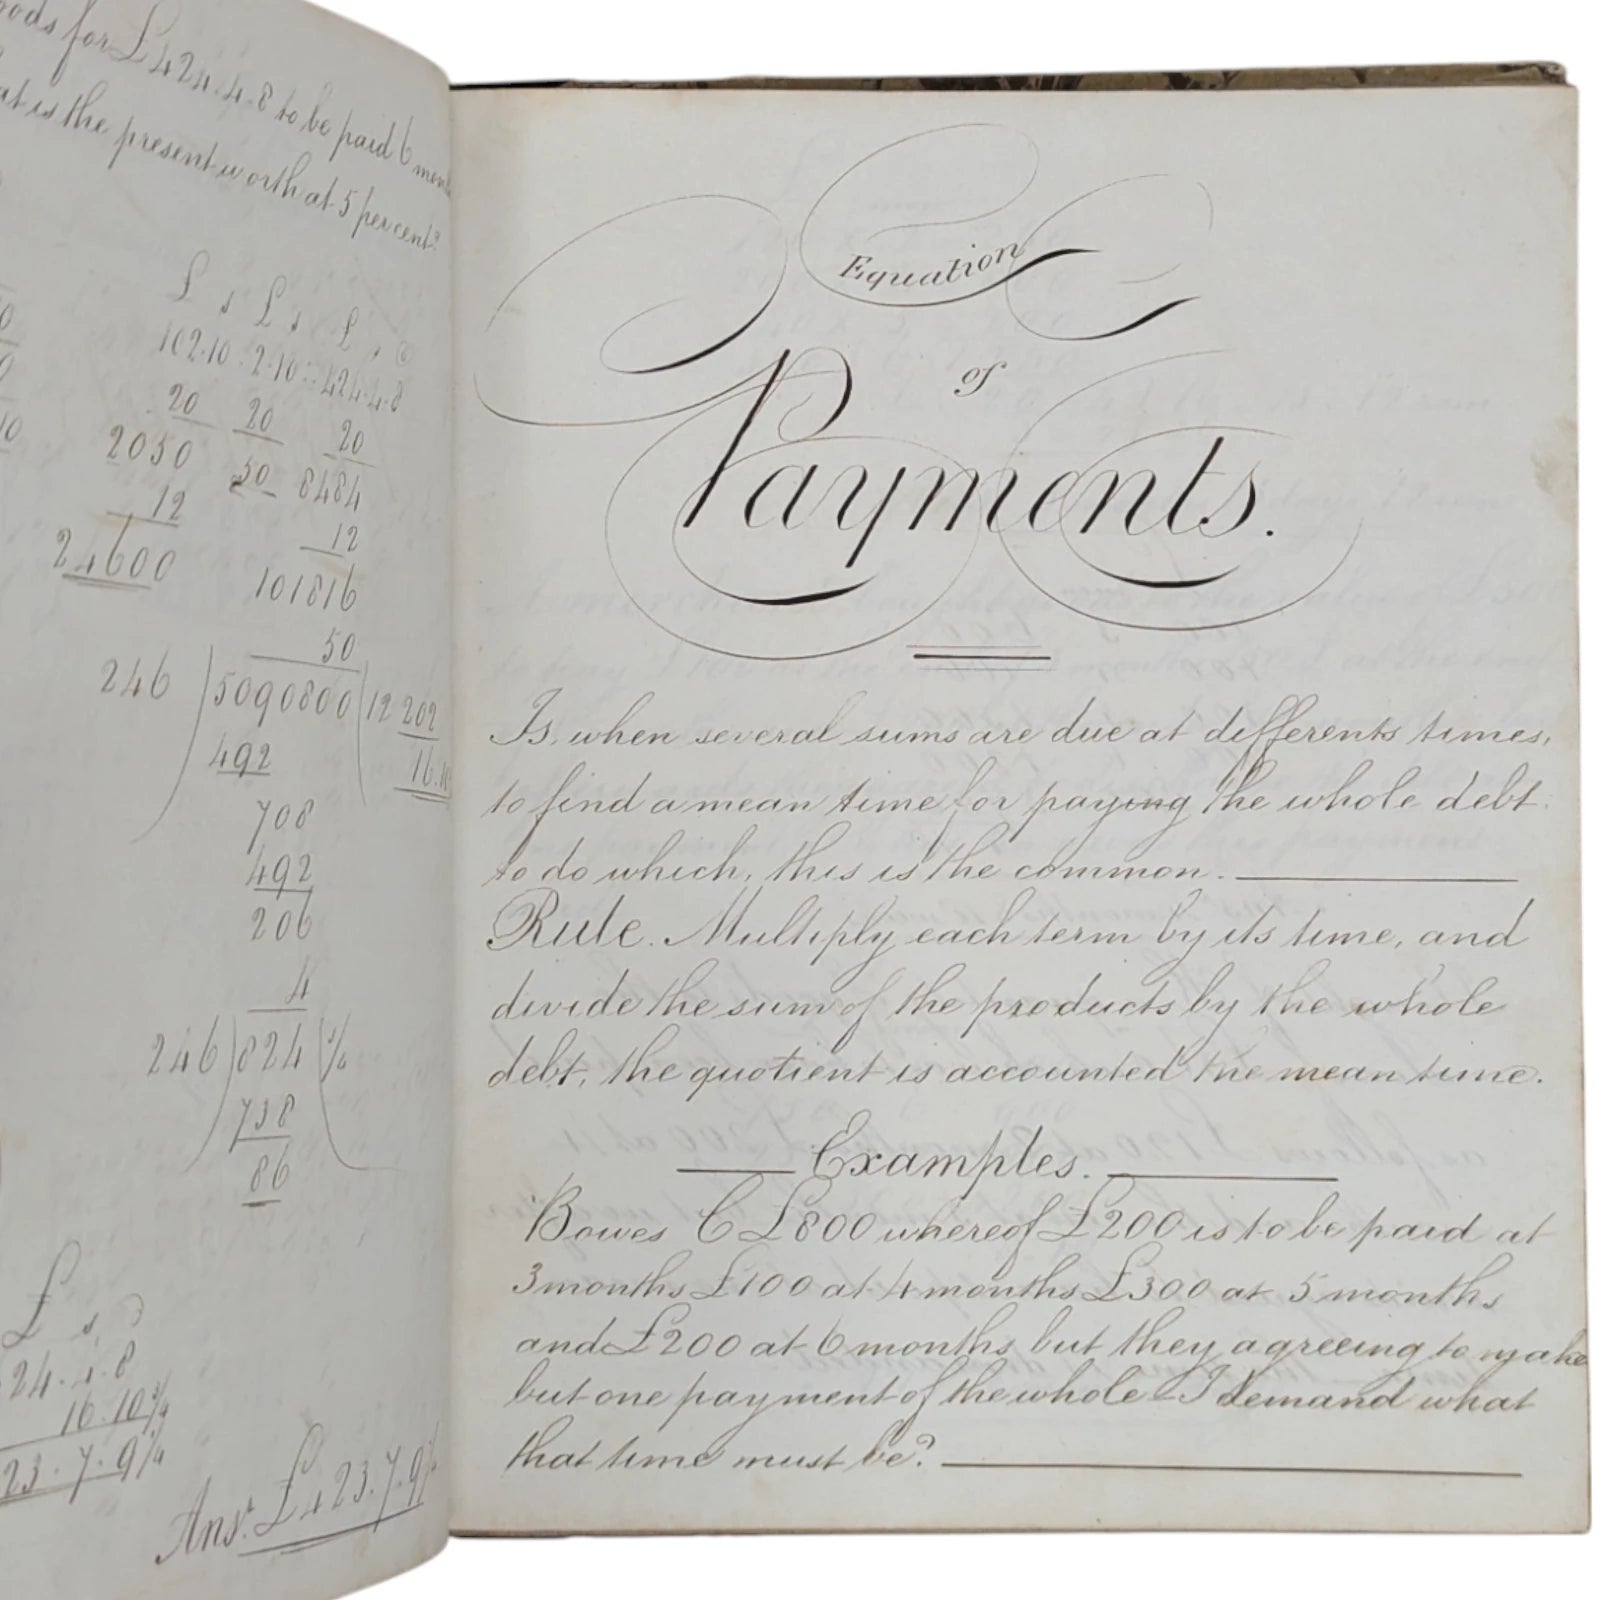 for £424.4.8 to be paid 6
is the present worth at 5 per cent?
£ s £ s £ s
102.10 : 2.10 :: 424.4.8
20 20 20
2050 50 8484
12 12
24600 101816
50
246 ) 5090800 ( 12 202
492 16.10
708
492
206
4
246 ) 824 ( 3/4
738
86
£ s
24.4.8
10.10 3/4
23.7.9 1/4
Ans.r £423.7.9 1/4
Equation
of
Payments.
Is, when several sums are due at differents times,
to find a mean time for paying the whole debt.
to do which, this is the common.
Rule. Multiply each term by its time, and
divide the sum of the products by the whole
debt, the quotient is accounted the mean time.
Examples.
B owes C £800 whereof £200 is to be paid at
3 months £100 at 4 months £300 at 5 months
and £200 at 6 months but they agreeing to make
but one payment of the whole I demand what
that time must be?